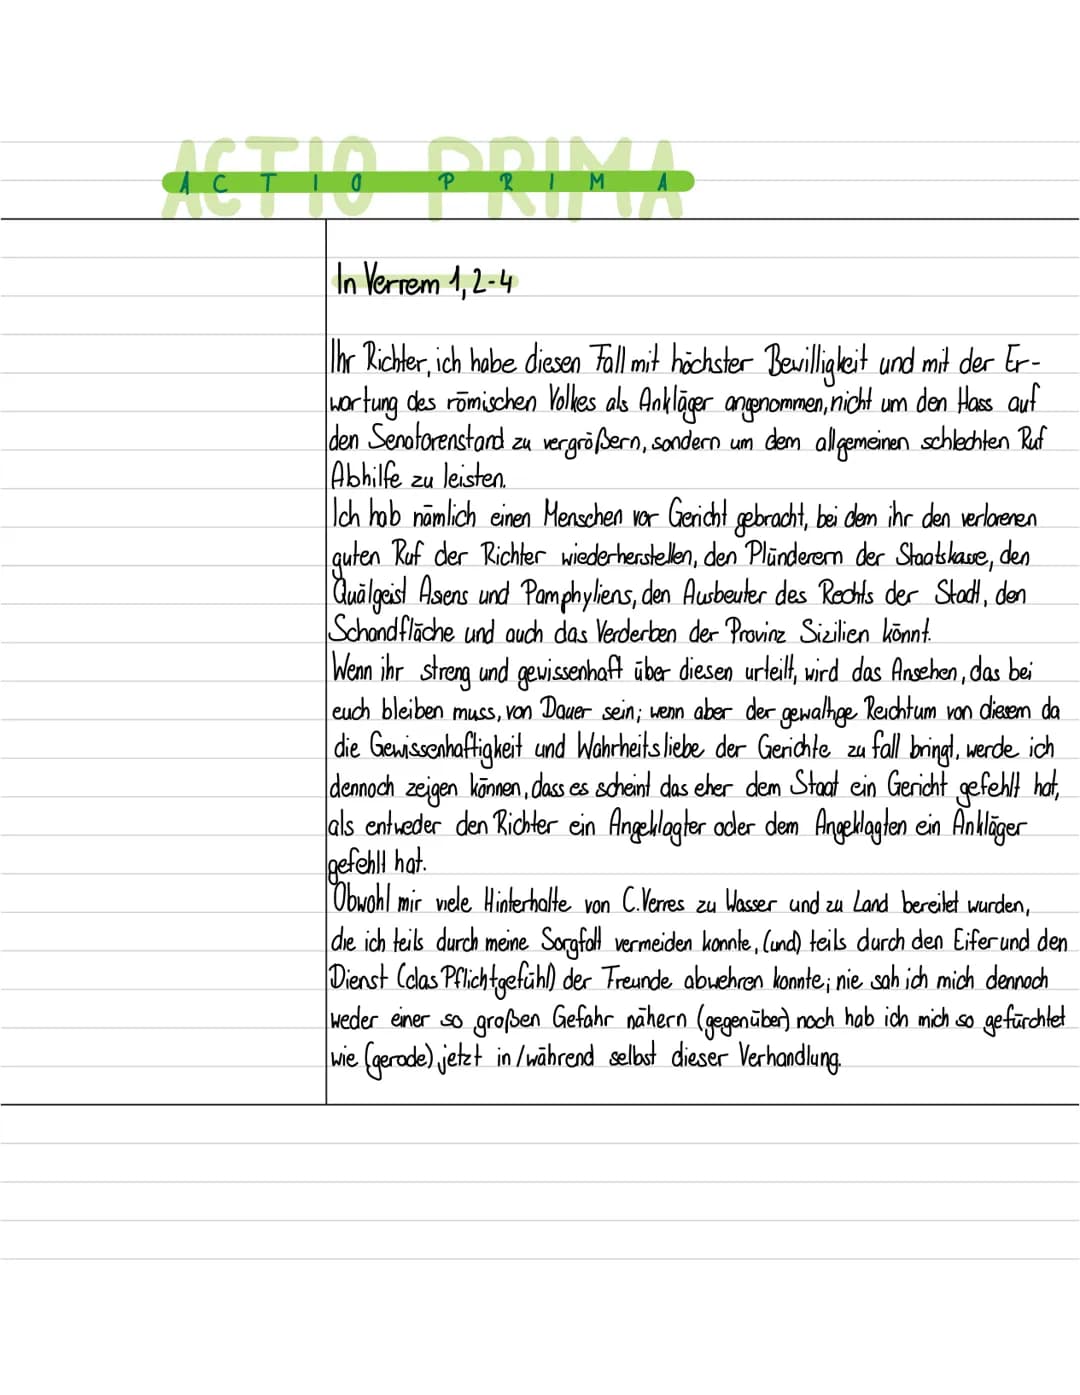 ACTIO PRIMA
A C T I O P R I M A
In Verrem 1, 2-4
Ihr Richter, ich habe diesen Fall mit höchster Bewilligkeit und mit der Er-
wartung des römischen Volkes als Ankläger angenommen, nicht um den Hass auf
den Senatorenstand zu vergrößern, sondern um dem allgemeinen schlechten Ruf
Abhilfe zu leisten.
Ich hab nämlich einen Menschen vor Gericht gebracht, bei dem ihr den verlorenen
guten Ruf der Richter wiederherstellen, den Plünderern der Staatskasse, den
Quälgeist Asiens und Pamphyliens, den Ausbeuter des Rechts der Stadt, den
Schandfläche und auch das Verderben der Provinz Sizilien könnt.
Wenn ihr streng und gewissenhaft über diesen urteilt, wird das Ansehen, das bei
euch bleiben muss, von Dauer sein; wenn aber der gewaltige Reichtum von diesem da
die Gewissenhaftigkeit und Wahrheitsliebe der Gerichte zu fall bringt, werde ich
dennoch zeigen können, dass es scheint das eher dem Staat ein Gericht gefehlt hat,
als entweder den Richter ein Angeklagter oder dem Angeklagten ein Ankläger
gefehlt hat.
Obwohl mir viele Hinterhalte von C.Verres zu Wasser und zu Land bereitet wurden,
die ich teils durch meine Sorgfalt vermeiden konnte, (und) teils durch den Eifer und den
Dienst (das Pflichtgefühl) der Freunde abwehren konnte; nie sah ich mich dennoch
weder einer so großen Gefahr nähern (gegenüber) noch hab ich mich so gefürchtet
wie (gerade) jetzt in/während selbst dieser Verhandlung.